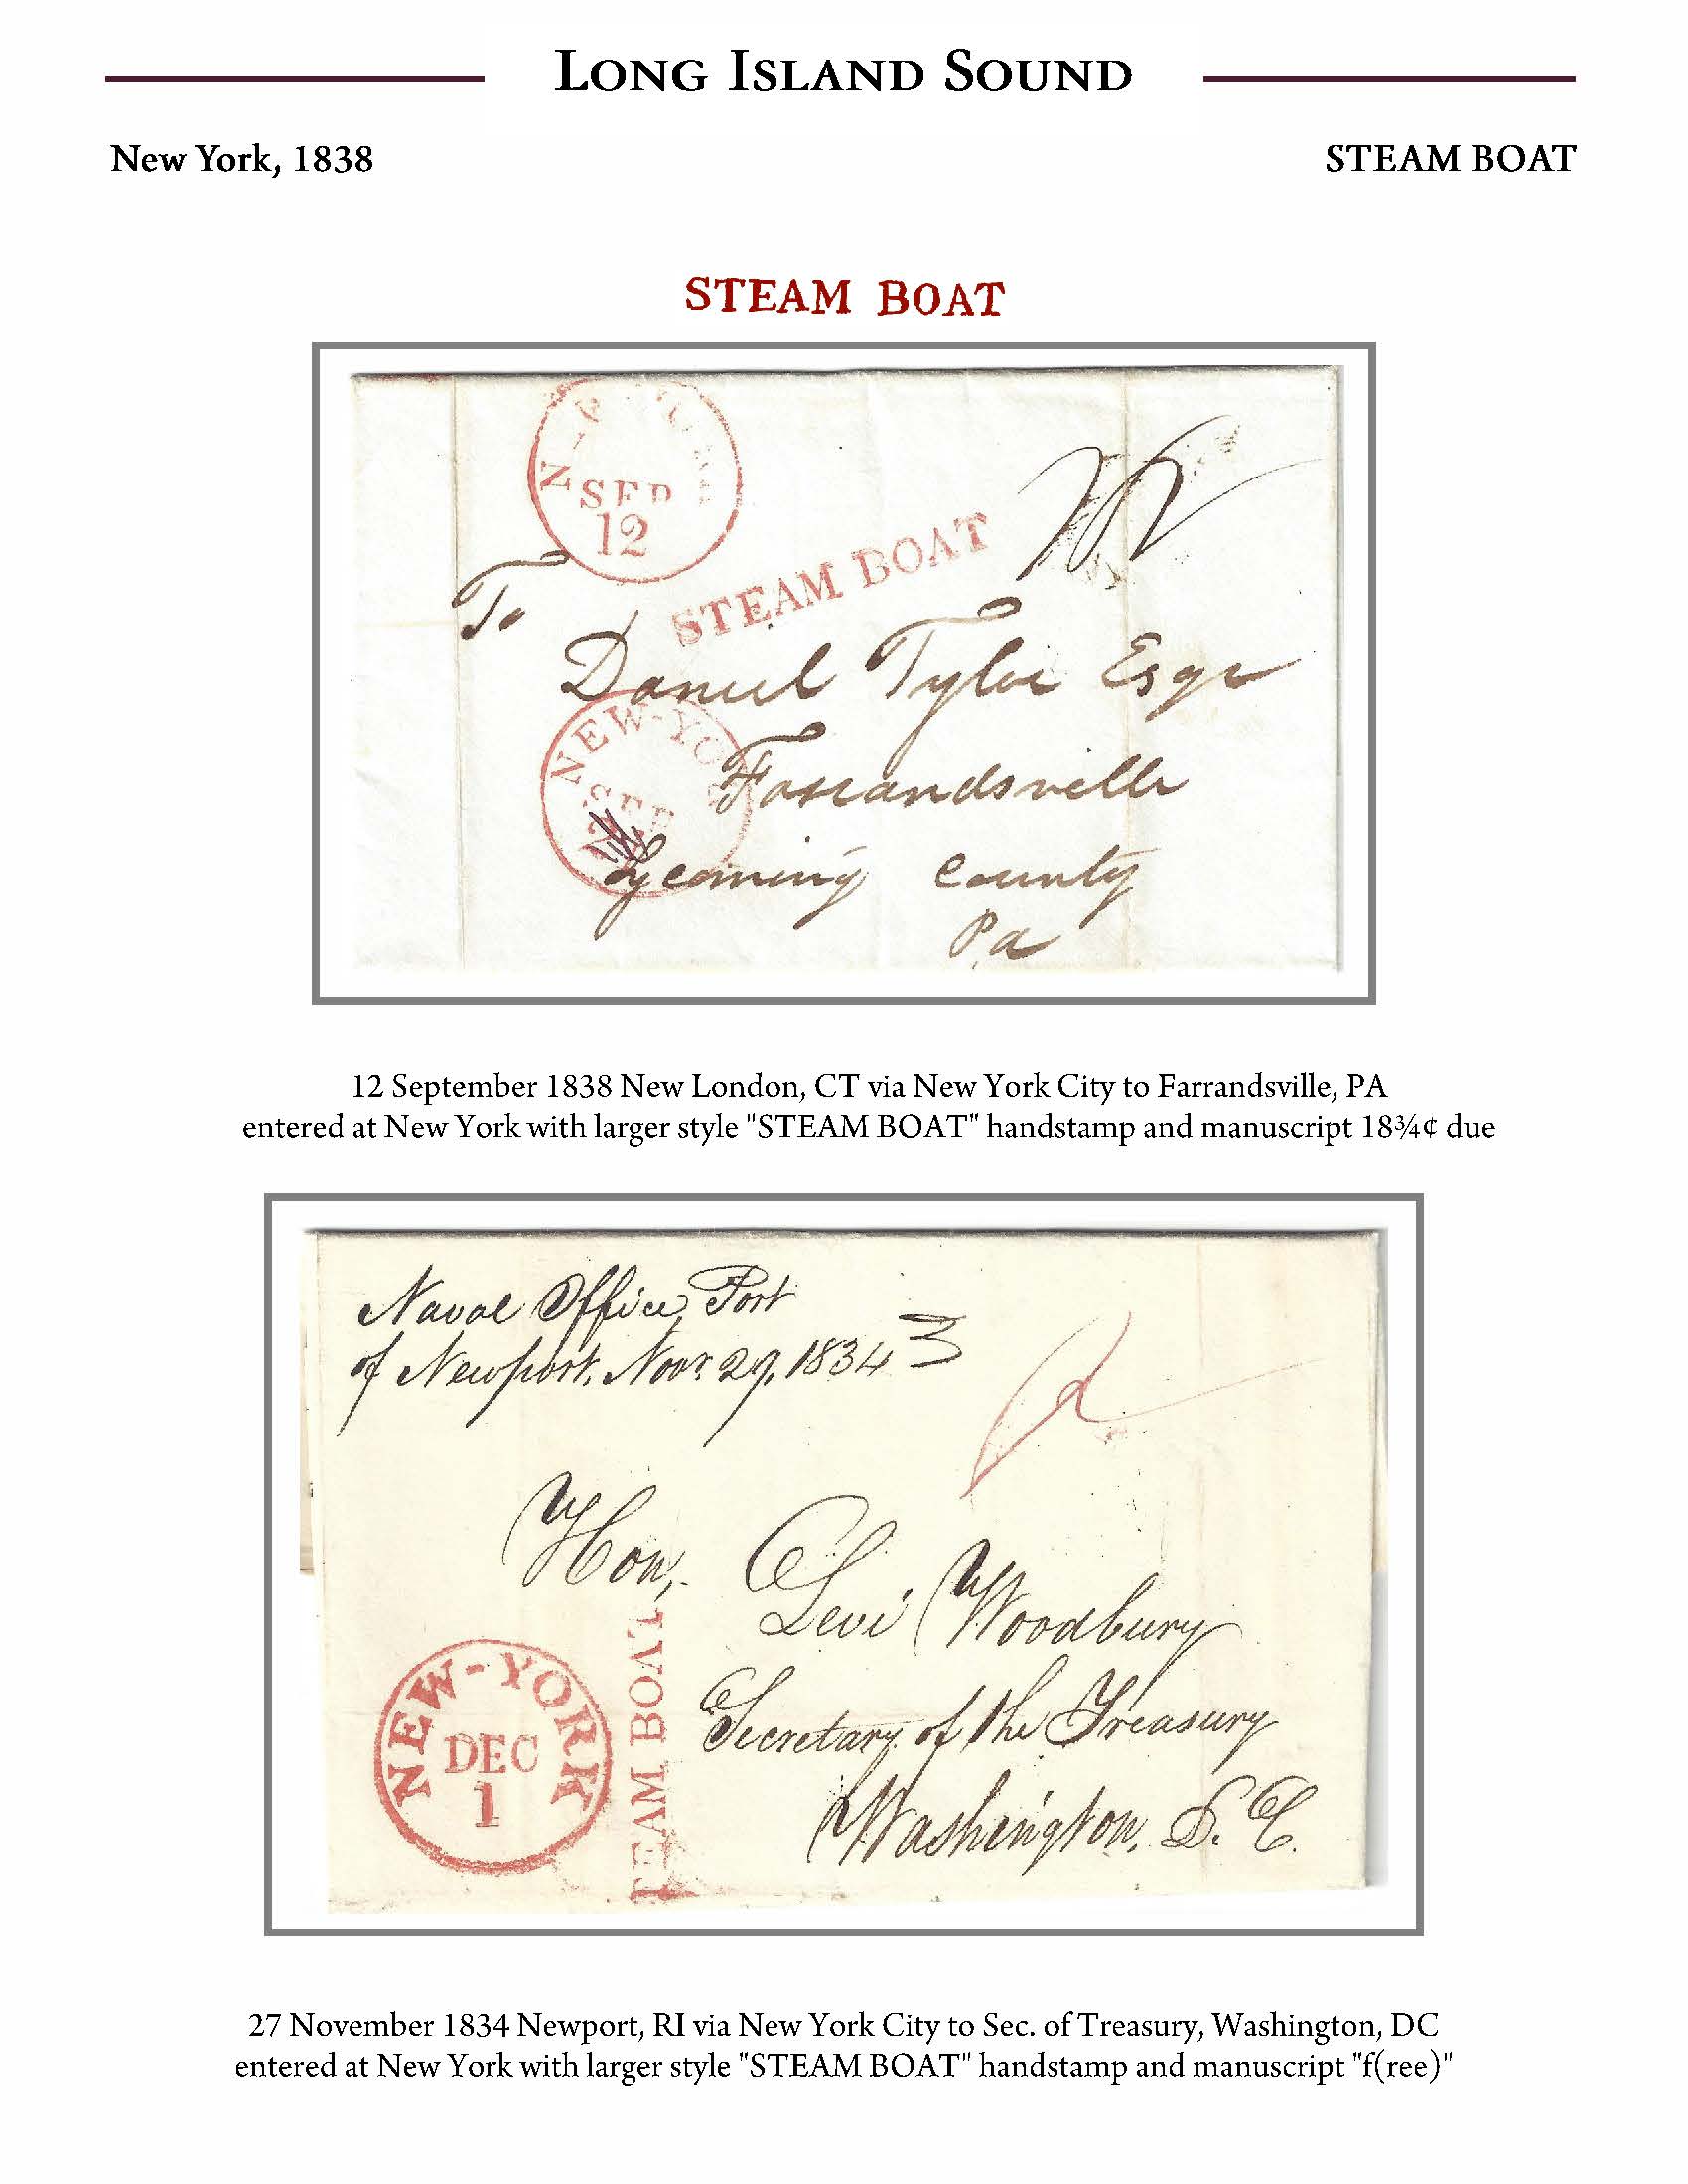 LONG ISLAND SOUND
New York, 1838
STEAM BOAT
STEAM BOAT
SEP
12
STEAM BOAT
To
Daniel Tyler Esqr
NEW-YO
Farrandsville
Lycoming County
Pa
12 September 1838 New London, CT via New York City to Farrandsville, PA
entered at New York with larger style "STEAM BOAT" handstamp and manuscript 18¾¢ due
Naval Office, Port
of Newport, Novr. 29, 1834
Hon,
Levi Woodbury
Secretary of the Treasury
Washington, D. C.
NEW-YORK
DEC
1
TEAM BOAT
27 November 1834 Newport, RI via New York City to Sec. of Treasury, Washington, DC
entered at New York with larger style "STEAM BOAT" handstamp and manuscript "f(ree)"